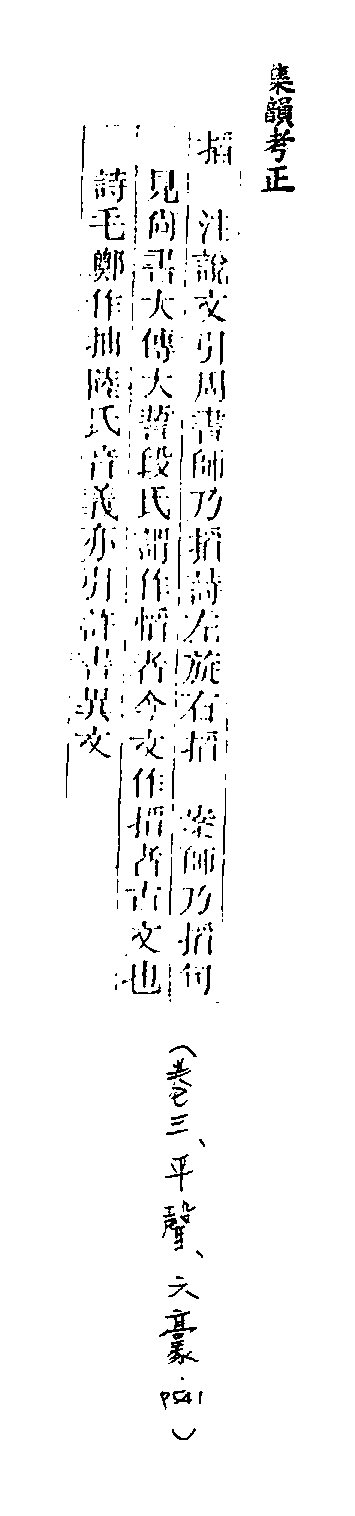 集韻考正
搯　注說文引周書師乃搯詩左旋右搯　案師乃搯句
見尙書大傳大誓段氏謂作慆者今文作搯者古文也
詩毛鄭作抽陸氏音義亦引許書異文
（卷三、平聲、六豪．P541）